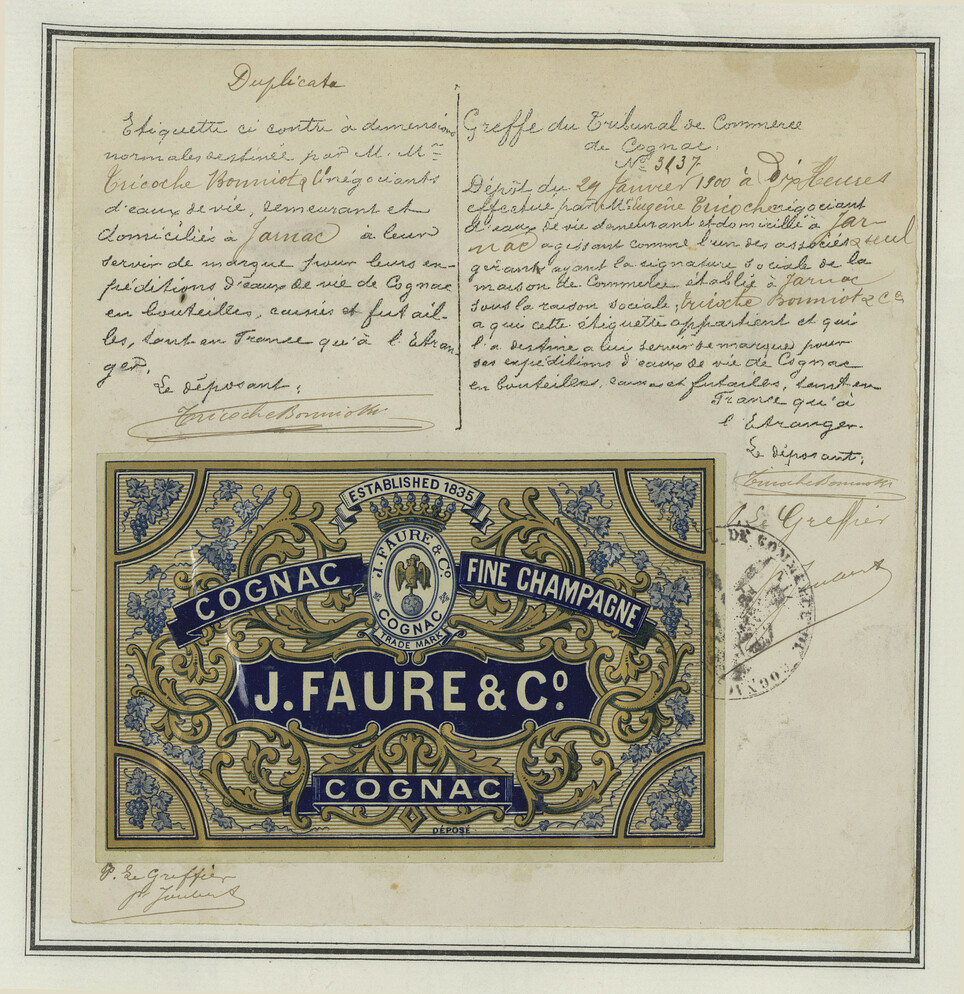 Duplicata
Etiquette ci contre à dimensions
normales destinée par M. Mrs
Tricoche Bonniot & Cie négociants
d'eaux de vie, demeurant et
domiciliés à Jarnac à leur
servir de marque pour leurs ex-
péditions d'eaux de vie de Cognac
en bouteilles, caisses et futail-
les, tant en France qu'à l'Etran-
ger.
Le déposant:
Tricoche Bonniot & Cie
Greffe du Tribunal de Commerce
de Cognac.
No 3137
Dépôt du 29 Janvier 1900 à Dix Heures
effectué par Mr Eugène Tricoche négociant
d'eaux de vie demeurant et domicilié à Jar-
nac agissant comme l'un des associés & seul
gérant ayant la signature sociale de la
maison de Commerce établie à Jarnac
sous la raison sociale, Tricoche Bonniot & Ce
a qui cette étiquette appartient et qui
l'a destine a lui servir de marque pour
ses expéditions d'eaux de vie de Cognac
en bouteilles, caisses et futailles, tant en
France qu'à
l'Etranger.
Le déposant:
Tricoche Bonniot & Cie
Le Greffier
Joubert
DE COMMERCE DE COGNAC
ESTABLISHED 1835
J. FAURE & Co
COGNAC
TRADE MARK
COGNAC FINE CHAMPAGNE
J. FAURE & Co.
COGNAC
DÉPOSÉ
P. Le Greffier
Joubert